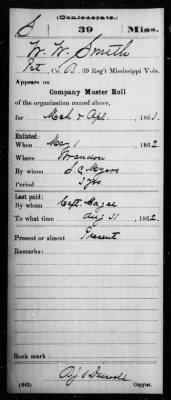 (Confederate.)
S 39 Miss.
W. W. Smith
Pvt, Co. B, 39 Reg't Mississippi Vols.
Appears on
Company Muster Roll
of the organization named above,
for Mch & Apl, 1863.
Enlisted:
When May 1, 1862
Where Brandon
By whom J. C. Myers
Period 3 yrs
Last paid:
By whom Capt. Magee
To what time Aug 31, 1862
Present or absent Present
Remarks:
Book mark:
(642) Copyist.